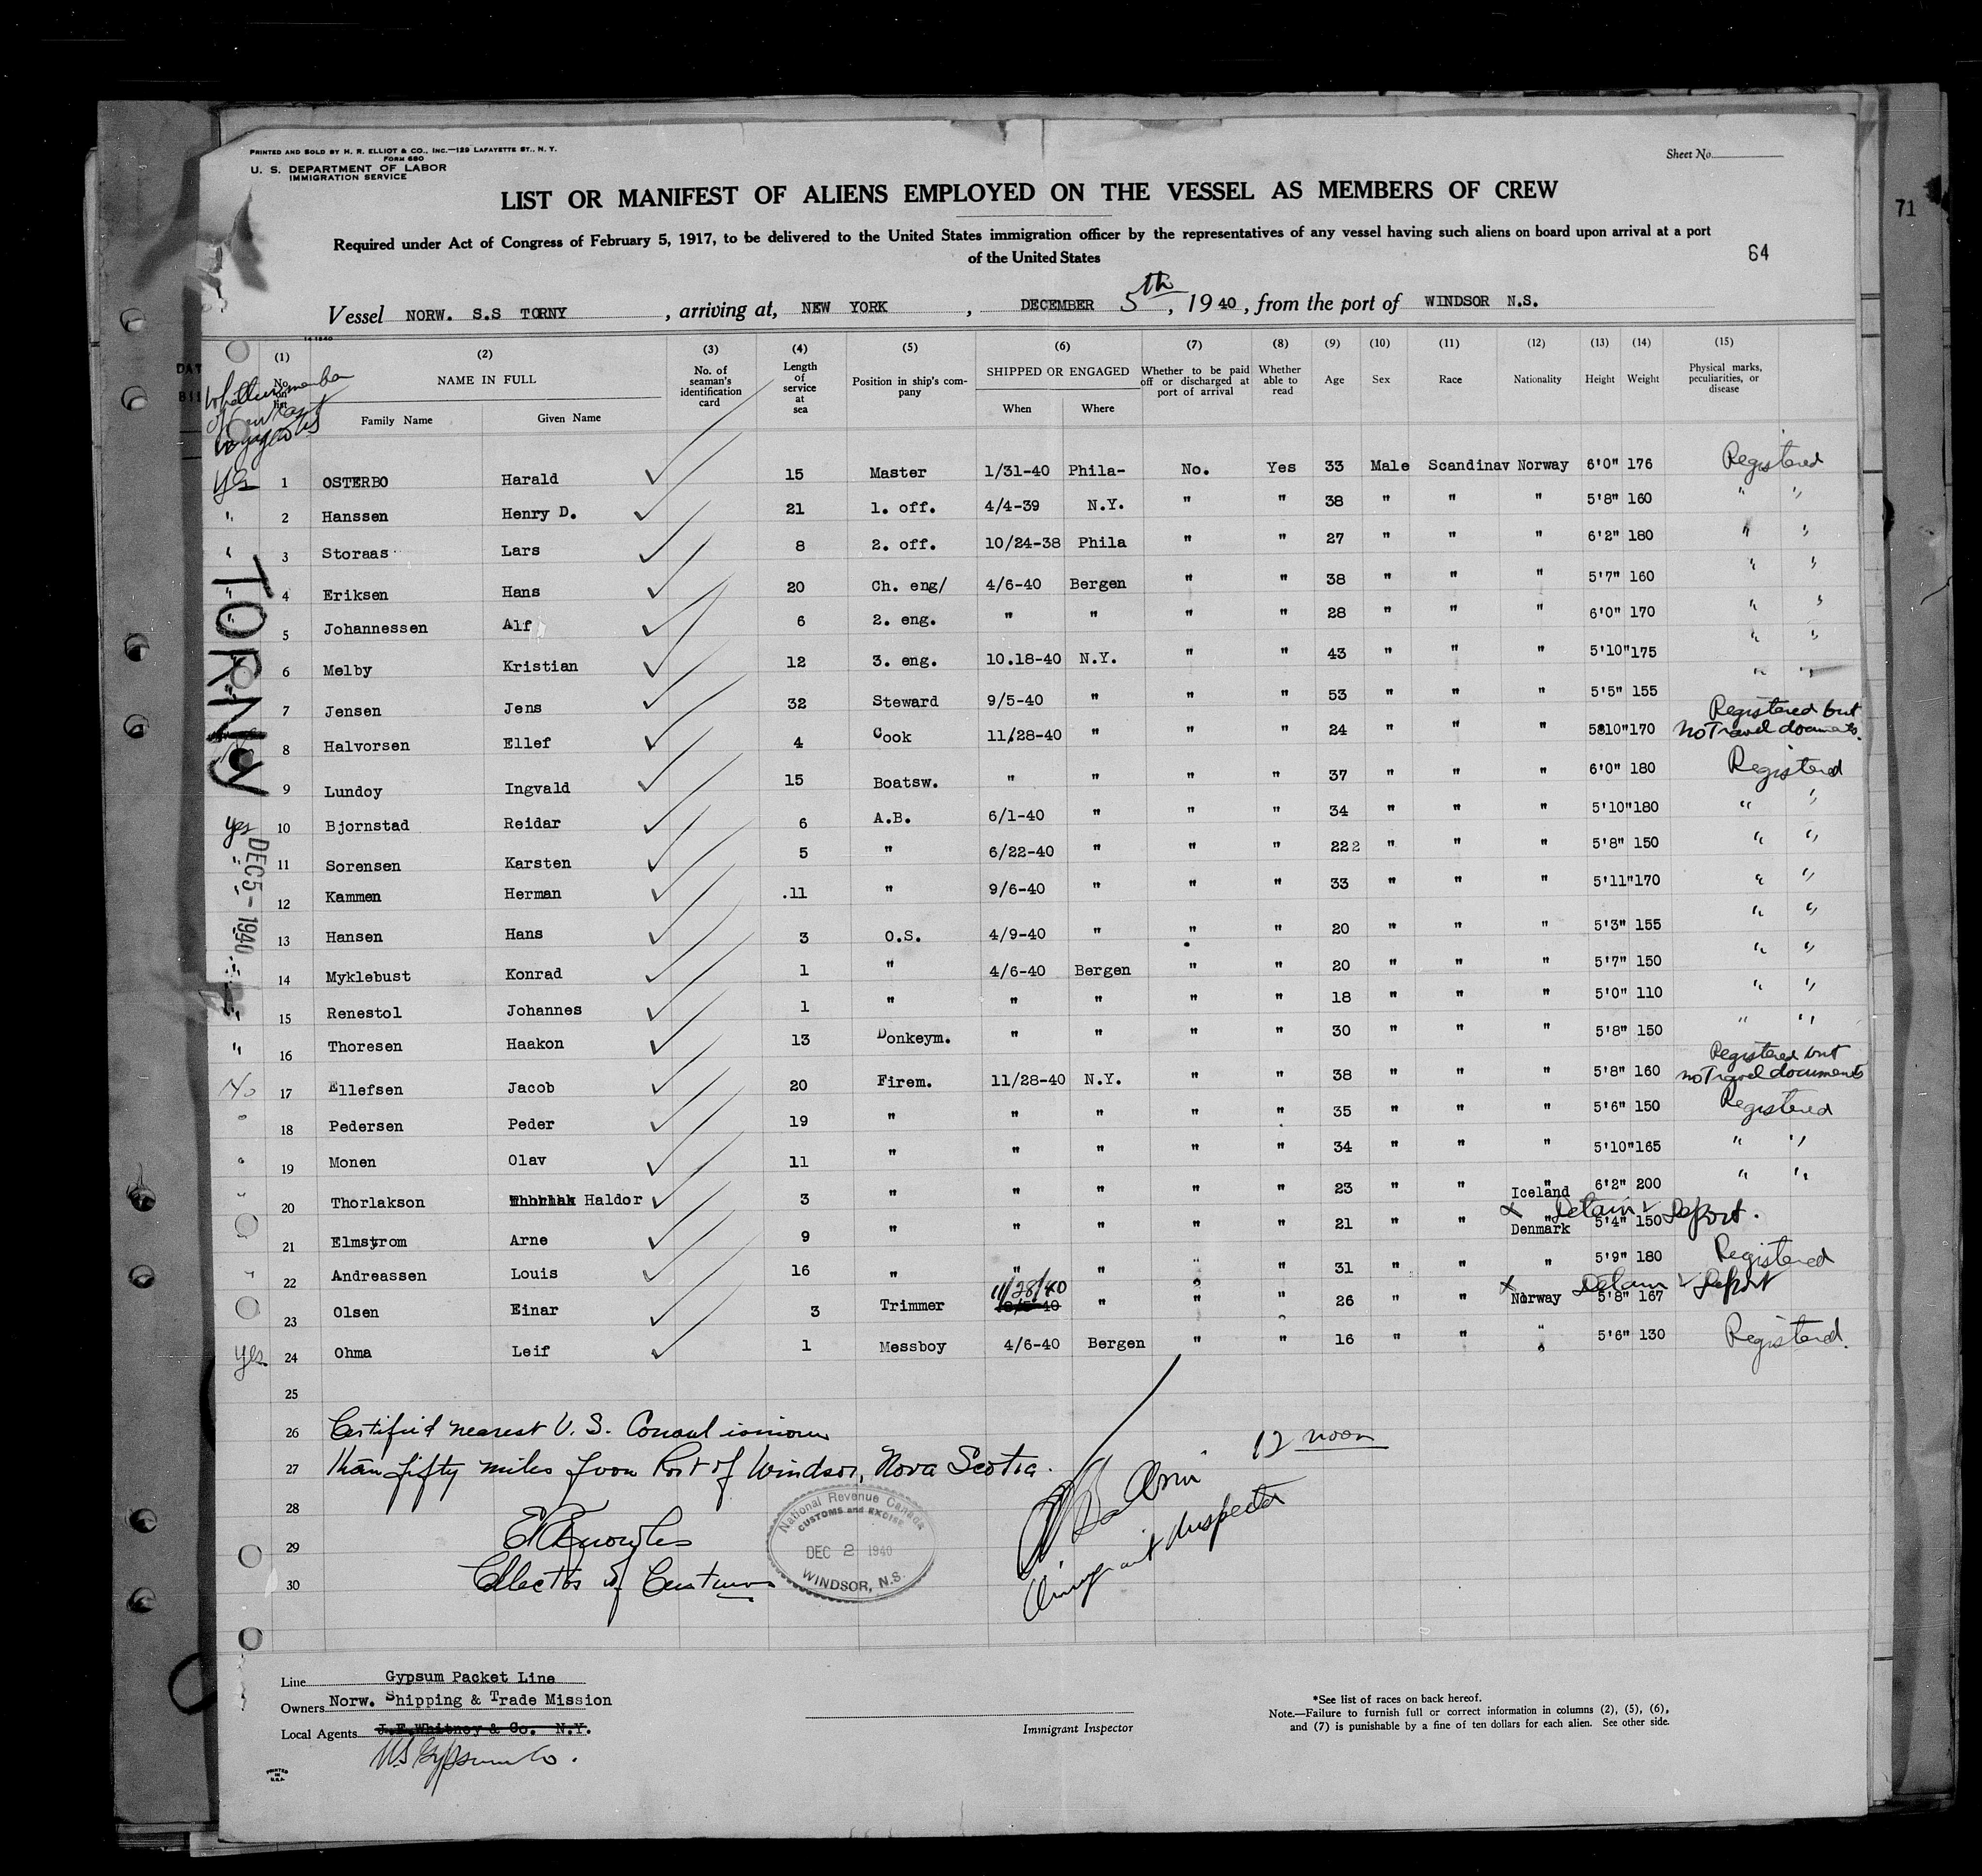 PRINTED AND SOLD BY H. R. ELLIOT & CO., INC.—129 LAFAYETTE ST., N. Y.
FORM 680
U. S. DEPARTMENT OF LABOR
IMMIGRATION SERVICE
Sheet No.
LIST OR MANIFEST OF ALIENS EMPLOYED ON THE VESSEL AS MEMBERS OF CREW
71
Required under Act of Congress of February 5, 1917, to be delivered to the United States immigration officer by the representatives of any vessel having such aliens on board upon arrival at a port
of the United States
64
Vessel NORW. S.S TORNY, arriving at, NEW YORK, DECEMBER 5th, 1940, from the port of WINDSOR N.S.
(1) No. on list (2) NAME IN FULL Family Name Given Name (3) No. of seaman's identification card (4) Length of service at sea (5) Position in ship's company (6) SHIPPED OR ENGAGED When Where (7) Whether to be paid off or discharged at port of arrival (8) Whether able to read (9) Age (10) Sex (11) Race (12) Nationality (13) Height (14) Weight (15) Physical marks, peculiarities, or disease
Whether member of crew last voyage to US
yes 1 OSTERBO Harald ✓ 15 Master 1/31-40 Phila- No. Yes 33 Male Scandinav Norway 6'0" 176 Registered
" 2 Hanssen Henry D. ✓ 21 1. off. 4/4-39 N.Y. " " 38 " " " 5'8" 160 " "
" 3 Storaas Lars ✓ 8 2. off. 10/24-38 Phila " " 27 " " " 6'2" 180 " "
" 4 Eriksen Hans ✓ 20 Ch. eng/ 4/6-40 Bergen " " 38 " " " 5'7" 160 " "
" 5 Johannessen Alf ✓ 6 2. eng. " " " " 28 " " " 6'0" 170 " "
" 6 Melby Kristian ✓ 12 3. eng. 10.18-40 N.Y. " " 43 " " " 5'10" 175 " "
" 7 Jensen Jens ✓ 32 Steward 9/5-40 " " " 53 " " " 5'5" 155 " "
8 Halvorsen Ellef ✓ 4 Cook 11/28-40 " " " 24 " " " 5810" 170 Registered but no Travel documents.
9 Lundoy Ingvald ✓ 15 Boatsw. " " " " 37 " " " 6'0" 180 Registered
yes 10 Bjornstad Reidar ✓ 6 A.B. 6/1-40 " " " 34 " " " 5'10" 180 " "
" 11 Sorensen Karsten ✓ 5 " 6/22-40 " " " 222 " " " 5'8" 150 " "
" 12 Kammen Herman ✓ .11 " 9/6-40 " " " 33 " " " 5'11" 170 " "
" 13 Hansen Hans ✓ 3 O.S. 4/9-40 " " " 20 " " " 5'3" 155 " "
" 14 Myklebust Konrad ✓ 1 " 4/6-40 Bergen " " 20 " " " 5'7" 150 " "
" 15 Renestol Johannes ✓ 1 " " " " " 18 " " " 5'0" 110 " "
" 16 Thoresen Haakon ✓ 13 Donkeym. " " " " 30 " " " 5'8" 150 " "
No 17 Ellefsen Jacob ✓ 20 Firem. 11/28-40 N.Y. " " 38 " " " 5'8" 160 Registered but no Travel documents
" 18 Pedersen Peder ✓ 19 " " " " " 35 " " " 5'6" 150 Registered
" 19 Monen Olav ✓ 11 " " " " " 34 " " " 5'10" 165 " "
" 20 Thorlakson Haldor ✓ 3 " " " " " 23 " " Iceland 6'2" 200 " "
21 Elmstrom Arne ✓ 9 " " " " " 21 " " Denmark 5'4" 150 x Detain & Deport.
" 22 Andreassen Louis ✓ 16 " " " " " 31 " " " 5'9" 180 Registered
23 Olsen Einar ✓ 3 Trimmer 11/28/40 " " " 26 " " Norway 5'8" 167 x Detain & Deport
yes 24 Ohma Leif ✓ 1 Messboy 4/6-40 Bergen " " 16 " " " 5'6" 130 Registered.
TORNY
DEC 5 - 1940
25
26 Certified nearest U. S. Consul is more
27 than fifty miles from Port of Windsor, Nova Scotia.
12 noon
28
29
30
E Knowles
Collector of Customs
National Revenue Canada
CUSTOMS and EXCISE
DEC 2 1940
WINDSOR, N.S.
Immigrant Inspector
Line Gypsum Packet Line
Owners Norw. Shipping & Trade Mission
Local Agents J.F. Whitney & Co. N.Y.
US Gypsum Co.
Immigrant Inspector
*See list of races on back hereof.
Note.—Failure to furnish full or correct information in columns (2), (5), (6),
and (7) is punishable by a fine of ten dollars for each alien. See other side.
PRINTED
IN
U.S.A.